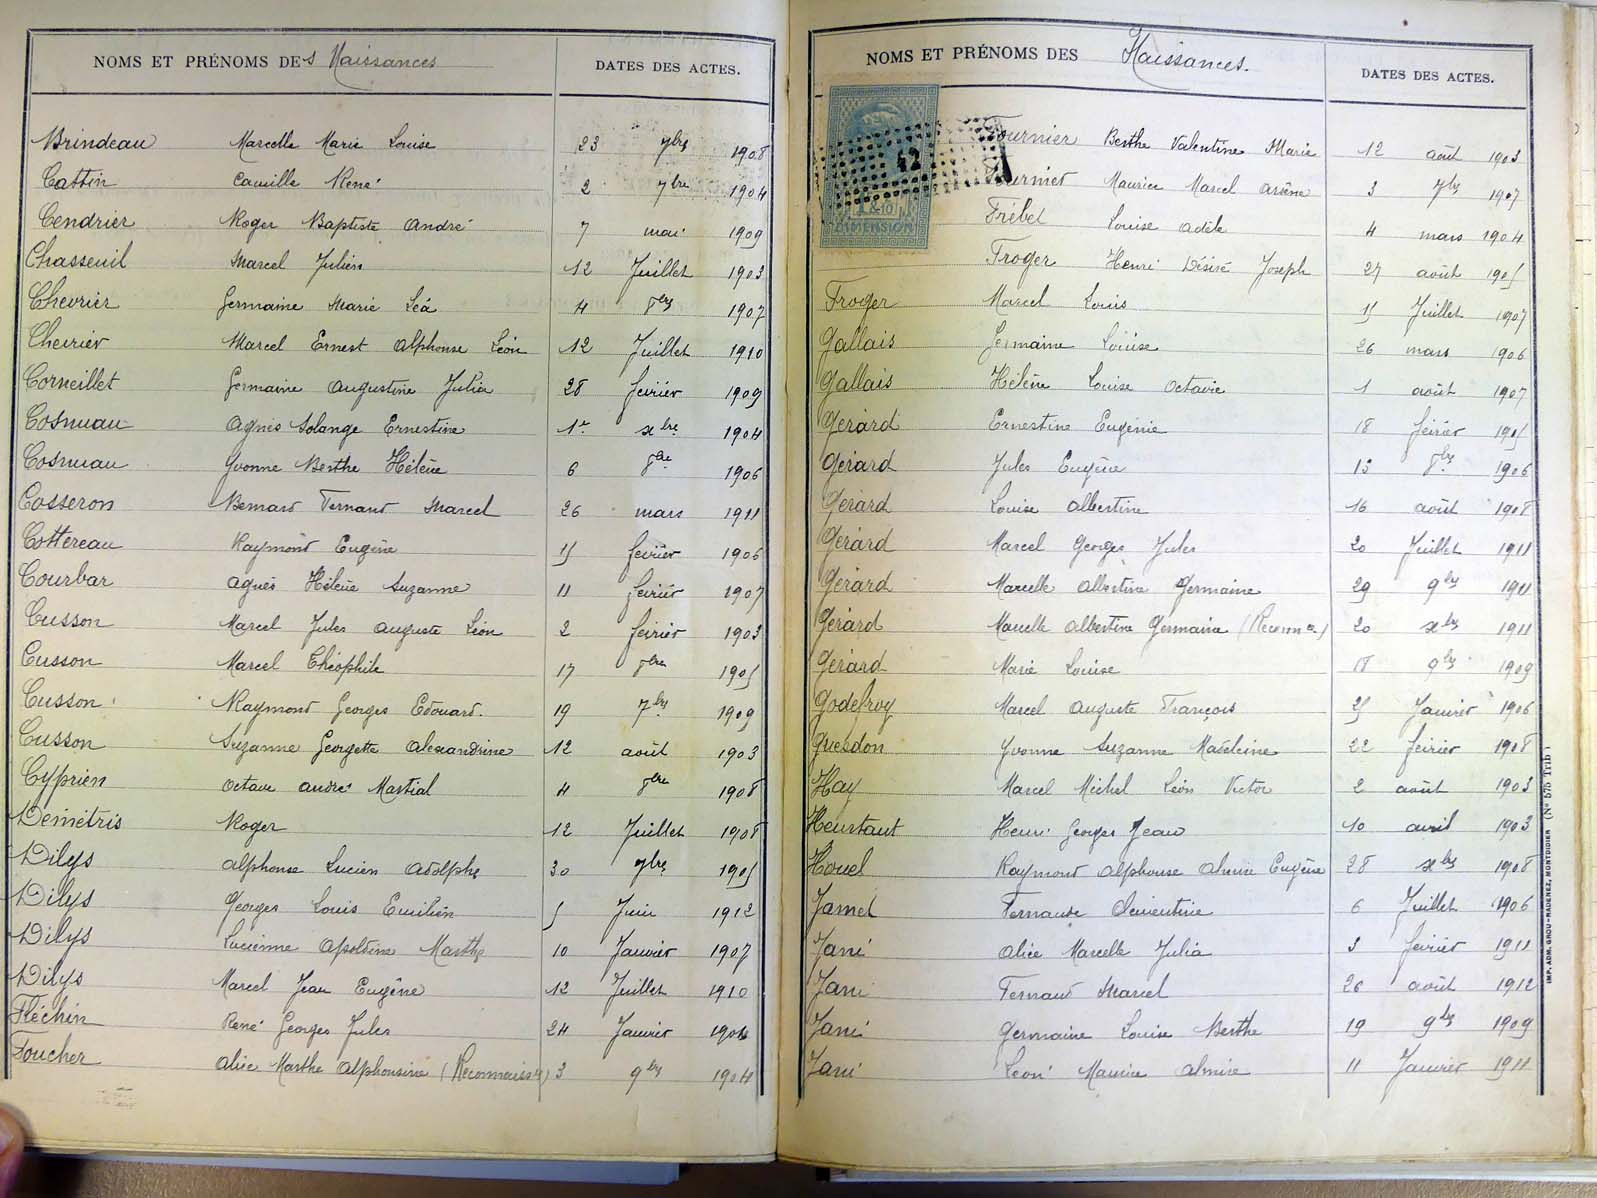 NOMS ET PRÉNOMS DEs Naissances
DATES DES ACTES.
Brindeau Marcelle Marie Louise 23 7bre 1908
Cattin Camille René 2 7bre 1904
Cendrier Roger Baptiste André 7 mai 1909
Chasseuil Marcel Julien 12 Juillet 1903
Chevrier Germaine Marie Léa 4 8bre 1907
Chevrier Marcel Ernest Alphonse Léon 12 Juillet 1910
Corneillet Germaine Augustine Julia 28 février 1909
Cosnuau Agnès Solange Ernestine 1er xbre 1904
Cosnuau Yvonne Berthe Hélène 6 8bre 1906
Cosseron Bernard Fernand Marcel 26 mars 1911
Cottereau Raymond Eugène 15 février 1906
Courbar Agnès Hélène Suzanne 11 février 1907
Cusson Marcel Jules Auguste Léon 2 février 1903
Cusson Marcel Théophile 17 8bre 1905
Cusson Raymond Georges Edouard. 19 7bre 1909
Cusson Suzanne Georgette Alexandrine 12 août 1903
Cyprien Octave André Martial 4 8bre 1908
Démétris Roger 12 Juillet 1908
Dilys Alphonse Lucien Adolphe 30 7bre 1905
Dilys Georges Louis Emilien 5 Juin 1912
Dilys Lucienne Apoldine Marthe 10 Janvier 1907
Dilys Marcel Jean Eugène 12 Juillet 1910
Fléchin René Georges Jules 24 Janvier 1904
Foucher Alice Marthe Alphonsine (Reconnaissce) 3 9bre 1904
NOMS ET PRÉNOMS DES Naissances.
DATES DES ACTES.
42
& 10
DIMENSION
Fournier Berthe Valentine Marie 12 août 1903
Fournier Maurice Marcel Arsène 3 7bre 1907
Frébet Louise Adèle 4 mars 1904
Froger Henri Désiré Joseph 27 août 1905
Froger Marcel Louis 15 Juillet 1907
Gallais Germaine Louise 26 mars 1906
Gallais Hélène Louise Octavie 1 août 1907
Gérard Ernestine Eugénie 18 février 1905
Gérard Jules Eugène 13 8bre 1906
Gérard Louise Albertine 16 août 1908
Gérard Marcel Georges Jules 20 Juillet 1911
Gérard Marcelle Albertine Germaine 29 9bre 1911
Gérard Marcelle Albertine Germaine (Reconnce) 20 xbre 1911
Gérard Marie Louise 18 9bre 1909
Godefroy Marcel Auguste François 25 Janvier 1906
Guesdon Yvonne Suzanne Madeleine 22 février 1908
Hay Marcel Michel Léon Victor 2 août 1903
Heurtaut Henri Georges Jean 10 avril 1903
Houel Raymond Alphonse Almire Eugène 28 xbre 1908
Jamet Fernande Clémentine 6 Juillet 1906
Jani Alice Marcelle Julia 3 février 1911
Jani Fernand Marcel 26 août 1912
Jani Germaine Louise Berthe 19 9bre 1909
Jani Léon Maurice Almire 11 Janvier 1911
IMP. ADM. GROU-RADENEZ, MONTDIDIER (N° 575 Trib)